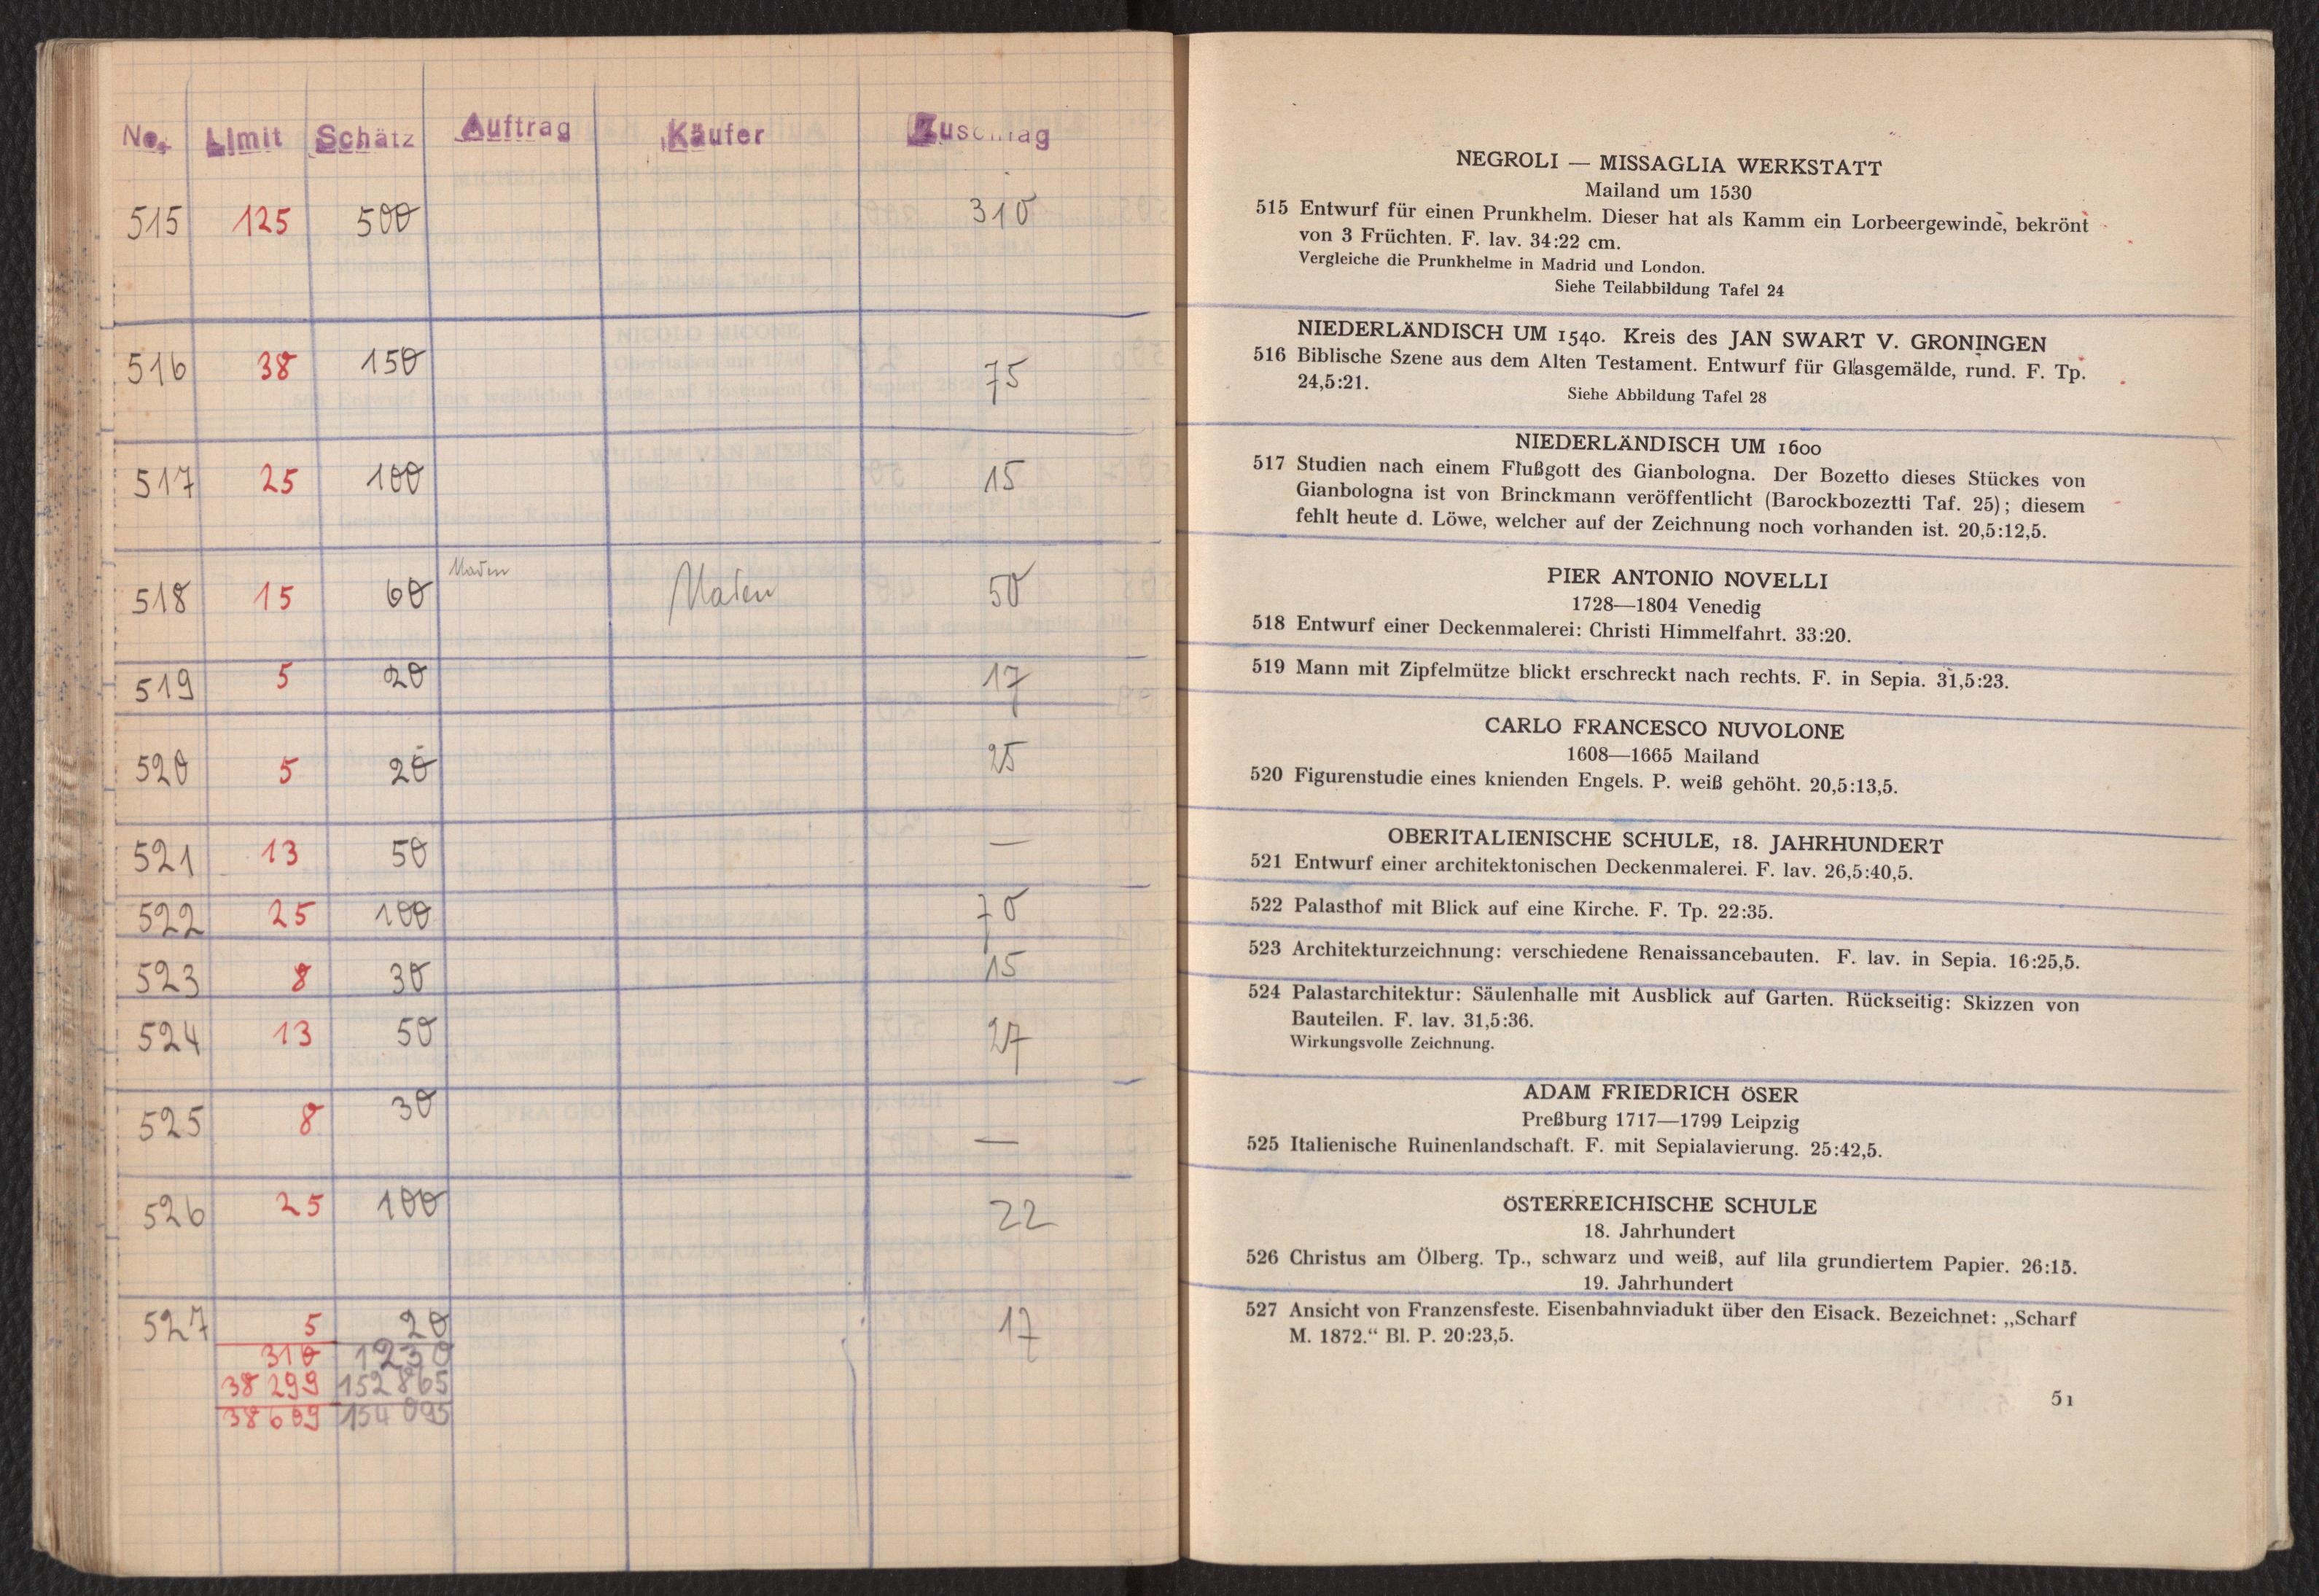 No. Limit Schätz Auftrag Käufer Zuschlag
515 125 500 310
516 38 150 75
517 25 100 15
518 15 60 50
519 5 20 17
520 5 20 25
521 13 50 —
522 25 100 70
523 8 30 15
524 13 50 27
525 8 30 —
526 25 100 22
527 5 20 17
310 1230
38 299 152 865
38 609 154 095
NEGROLI — MISSAGLIA WERKSTATT
Mailand um 1530
515 Entwurf für einen Prunkhelm. Dieser hat als Kamm ein Lorbeergewinde, bekrönt
von 3 Früchten. F. lav. 34:22 cm.
Vergleiche die Prunkhelme in Madrid und London.
Siehe Teilabbildung Tafel 24
NIEDERLÄNDISCH UM 1540. Kreis des JAN SWART V. GRONINGEN
516 Biblische Szene aus dem Alten Testament. Entwurf für Glasgemälde, rund. F. Tp.
24,5:21.
Siehe Abbildung Tafel 28
NIEDERLÄNDISCH UM 1600
517 Studien nach einem Flußgott des Gianbologna. Der Bozetto dieses Stückes von
Gianbologna ist von Brinckmann veröffentlicht (Barockbozeztti Taf. 25); diesem
fehlt heute d. Löwe, welcher auf der Zeichnung noch vorhanden ist. 20,5:12,5.
PIER ANTONIO NOVELLI
1728—1804 Venedig
518 Entwurf einer Deckenmalerei: Christi Himmelfahrt. 33:20.
519 Mann mit Zipfelmütze blickt erschreckt nach rechts. F. in Sepia. 31,5:23.
CARLO FRANCESCO NUVOLONE
1608—1665 Mailand
520 Figurenstudie eines knienden Engels. P. weiß gehöht. 20,5:13,5.
OBERITALIENISCHE SCHULE, 18. JAHRHUNDERT
521 Entwurf einer architektonischen Deckenmalerei. F. lav. 26,5:40,5.
522 Palasthof mit Blick auf eine Kirche. F. Tp. 22:35.
523 Architekturzeichnung: verschiedene Renaissancebauten. F. lav. in Sepia. 16:25,5.
524 Palastarchitektur: Säulenhalle mit Ausblick auf Garten. Rückseitig: Skizzen von
Bauteilen. F. lav. 31,5:36.
Wirkungsvolle Zeichnung.
ADAM FRIEDRICH ÖSER
Preßburg 1717—1799 Leipzig
525 Italienische Ruinenlandschaft. F. mit Sepialavierung. 25:42,5.
ÖSTERREICHISCHE SCHULE
18. Jahrhundert
526 Christus am Ölberg. Tp., schwarz und weiß, auf lila grundiertem Papier. 26:15.
19. Jahrhundert
527 Ansicht von Franzensfeste. Eisenbahnviadukt über den Eisack. Bezeichnet: „Scharf
M. 1872.“ Bl. P. 20:23,5.
51